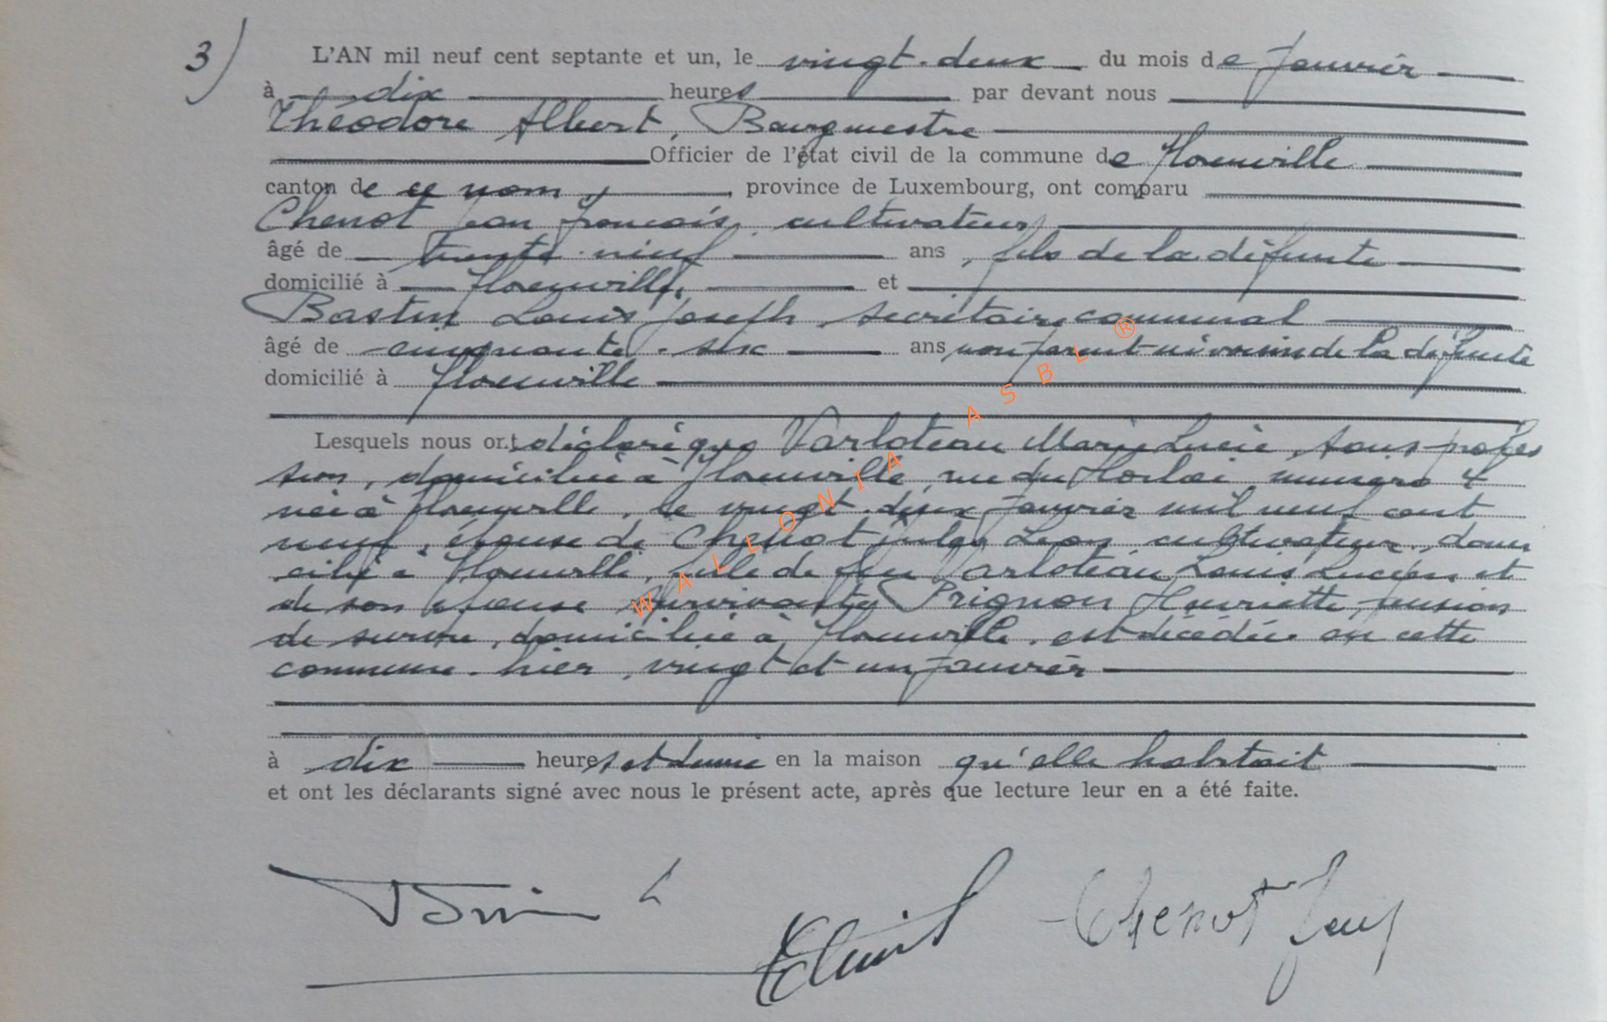 3)
L'AN mil neuf cent septante et un, le vingt-deux du mois de Janvier
à dix heures par devant nous
Théodore Albert, Bourgmestre
Officier de l'état civil de la commune de Florenville
canton de ce nom, province de Luxembourg, ont comparu
Chenot Jean François, cultivateur,
âgé de trente-neuf ans, fils de la défunte
domicilié à Florenville, et
Bastin Louis Joseph, secrétaire communal
âgé de cinquante-six ans non parent ni voisin de la défunte
domicilié à Florenville
Lesquels nous ont déclaré que Varloteau Marie Lucie, sans profes
sion, domiciliée à Florenville, rue du numéro 4
née à Florenville, le vingt-deux Janvier mil neuf cent
neuf, épouse de Chenot Jules Léon, cultivateur, domi
cilié à Florenville, fille de feu Varloteau Louis Lucien et
de son épouse survivante Prignon Henriette, pension
de survie, domiciliée à Florenville, est décédée en cette
commune hier, vingt et un janvier
à dix heures et demie en la maison qu'elle habitait
et ont les déclarants signé avec nous le présent acte, après que lecture leur en a été faite.
Chenot Jean
WALLONIA ASBL ®